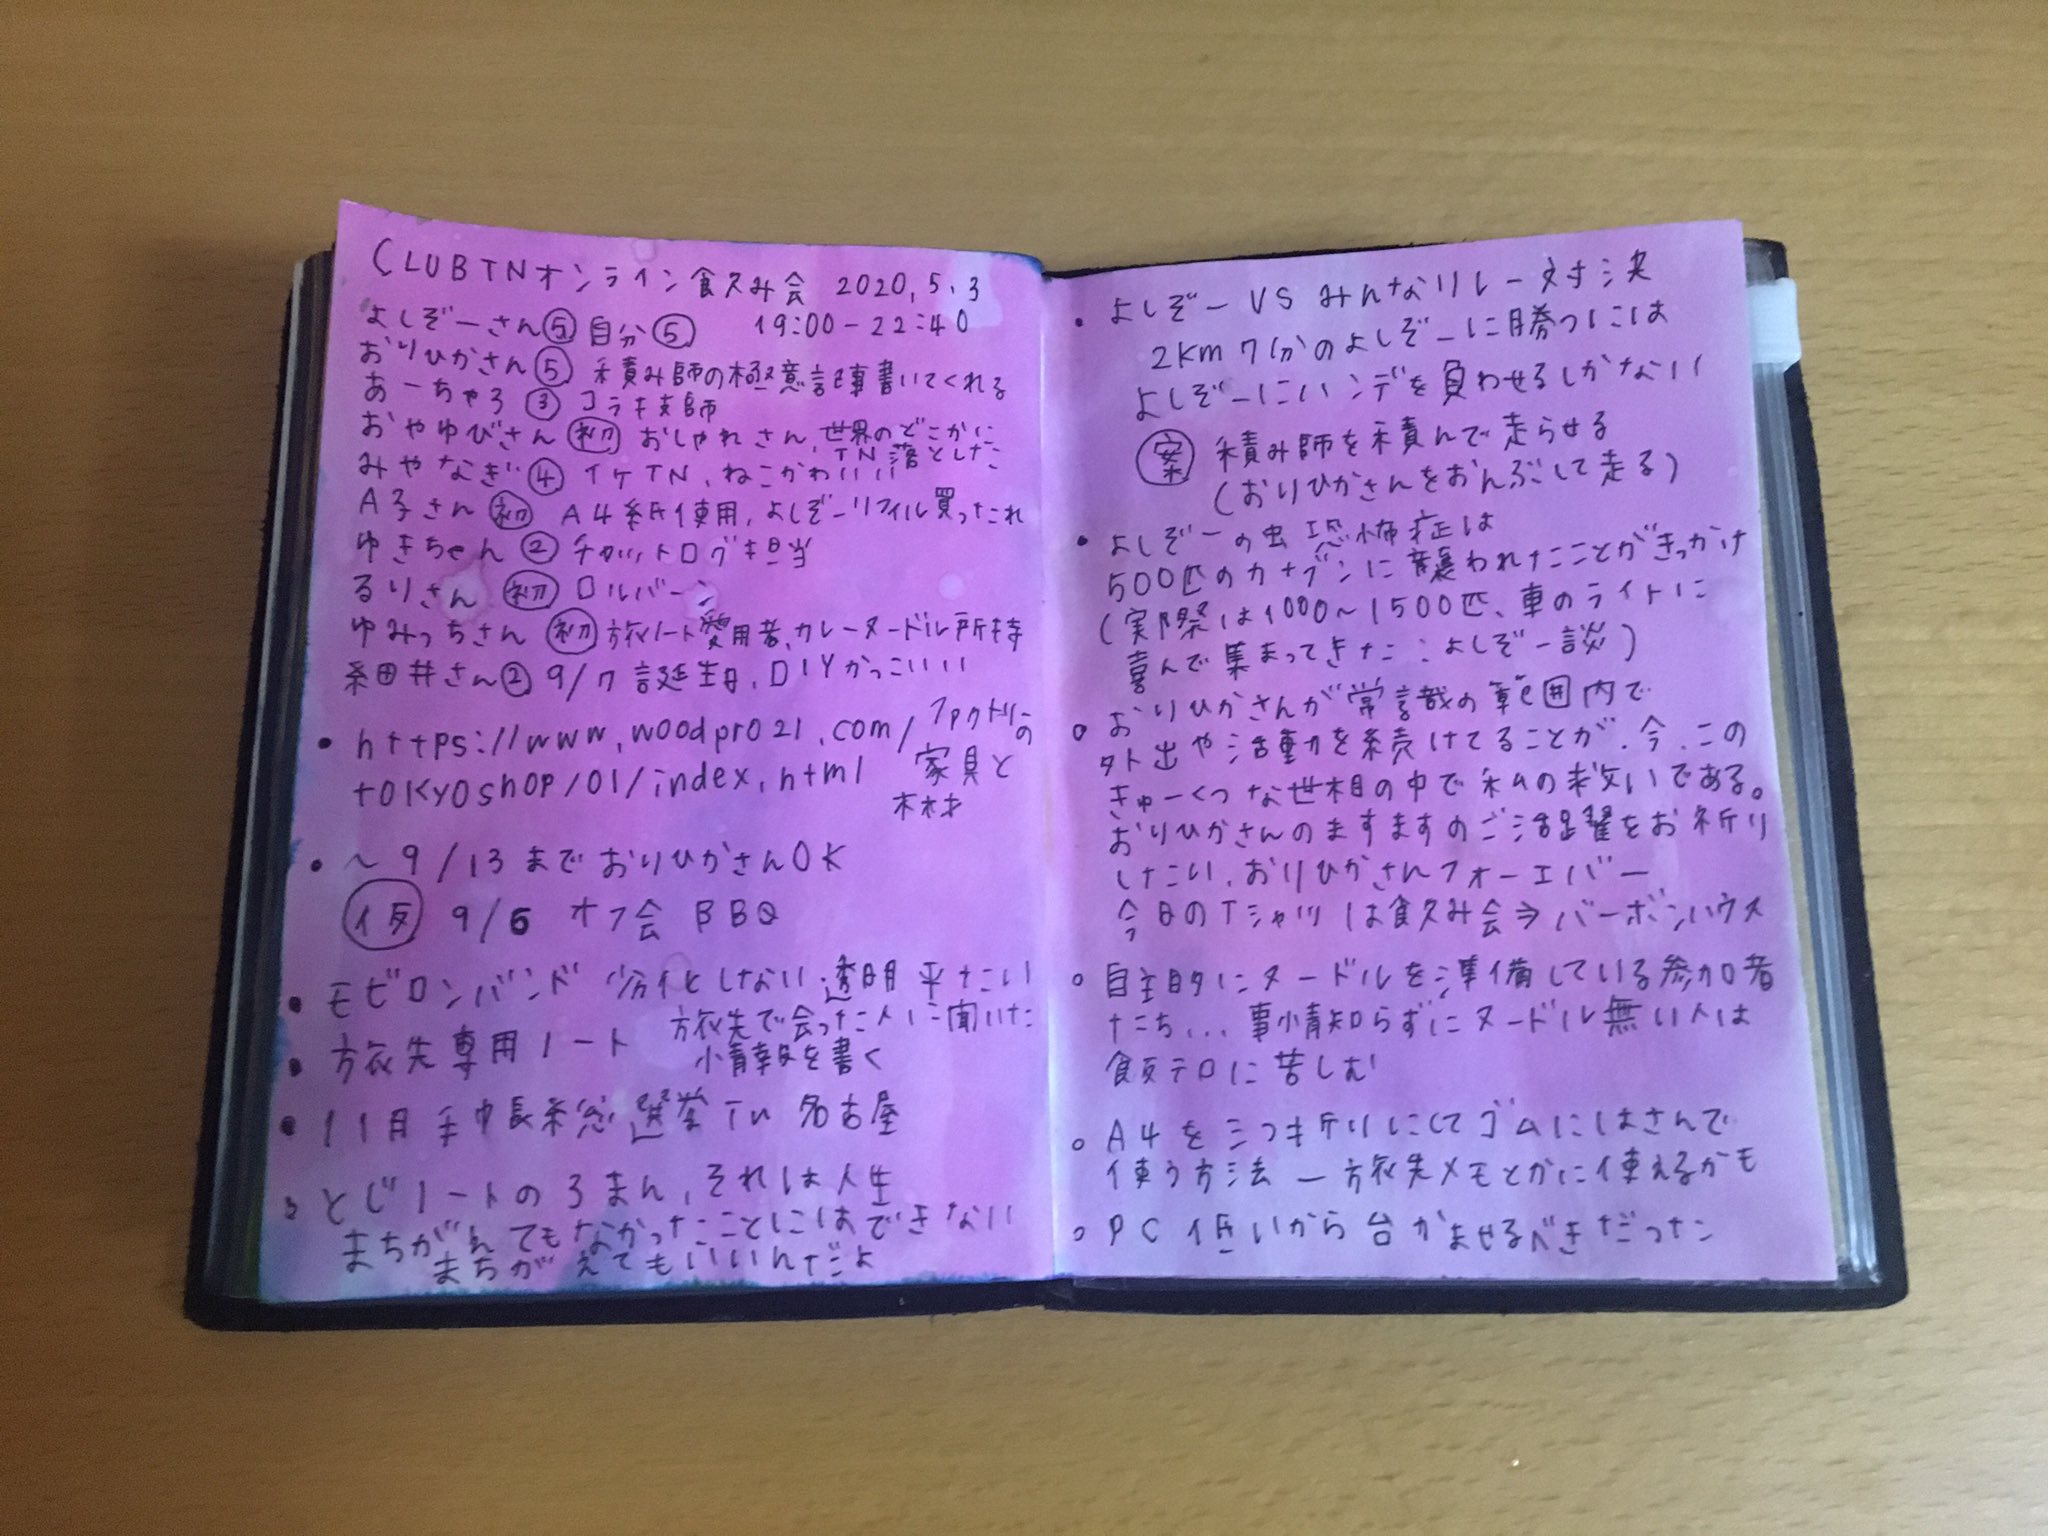 CLUBTNオンライン飲み会 2020.5.3
19:00-22:40
よしぞーさん⑤自分⑤
おりひかさん⑤ 積み師の極意記事書いてくれる
あーちゃろ③ コラキ支師
おやゆびさん(初) おしゃれさん、世界のどこかに
TN落とした
みやなぎ④ イケTN、ねこかわいい
A子さん(初) A4紙使用、よしぞーリフィル買ったこれ
ゆきちゃん② チャットログ担当
るりさん(初) ロルバーン
ゆみっちさん(初)旅ノート愛用者、カレーヌードル所持
細井さん②9/7誕生日、DIYかっこいい
• https://www.woodpro21.com/ ファクトリーの
tokyoshop/01/index.html 家具と
木材
• ~9/13までおりひかさんOK
(仮) 9/6 オフ会 BBQ
• モビロンバンド 劣化しない透明平たい
• 旅先専用ノート 旅先で会った人に聞いた
情報を書く
• 11月手帳総選挙 in 名古屋
• とじノートのろまん、それは人生
まちがえてもなかったことにはできない
まちがえてもいいんだよ
• よしぞーVSみんなリレー対決
2km7分のよしぞーに勝つには
よしぞーにハンデを負わせるしかない
(案) 積み師を積んで走らせる
(おりひかさんをおんぶして走る)
• よしぞーの虫恐怖症は
500匹のカナブンに襲われたことがきっかけ
(実際は1000~1500匹、車のライトに
喜んで集まってきた:よしぞー談)
• おりひかさんが常識の範囲内で
外出や活動を続けてることが、今、この
きゅーくつな世相の中で私の救いである。
おりひかさんのますますのご活躍をお祈り
したい、おりひかさんフォーエバー
今日のTシャツは飲み会⇒バーボンハウス
• 自主的にヌードルを準備している参加者
たち...事情知らずにヌードル無い人は
飯テロに苦しむ
• A4を三つ折りにしてゴムにはさんで
使う方法 — 旅先メモとかに使えるかも
• PC低いから台かませるべきだった